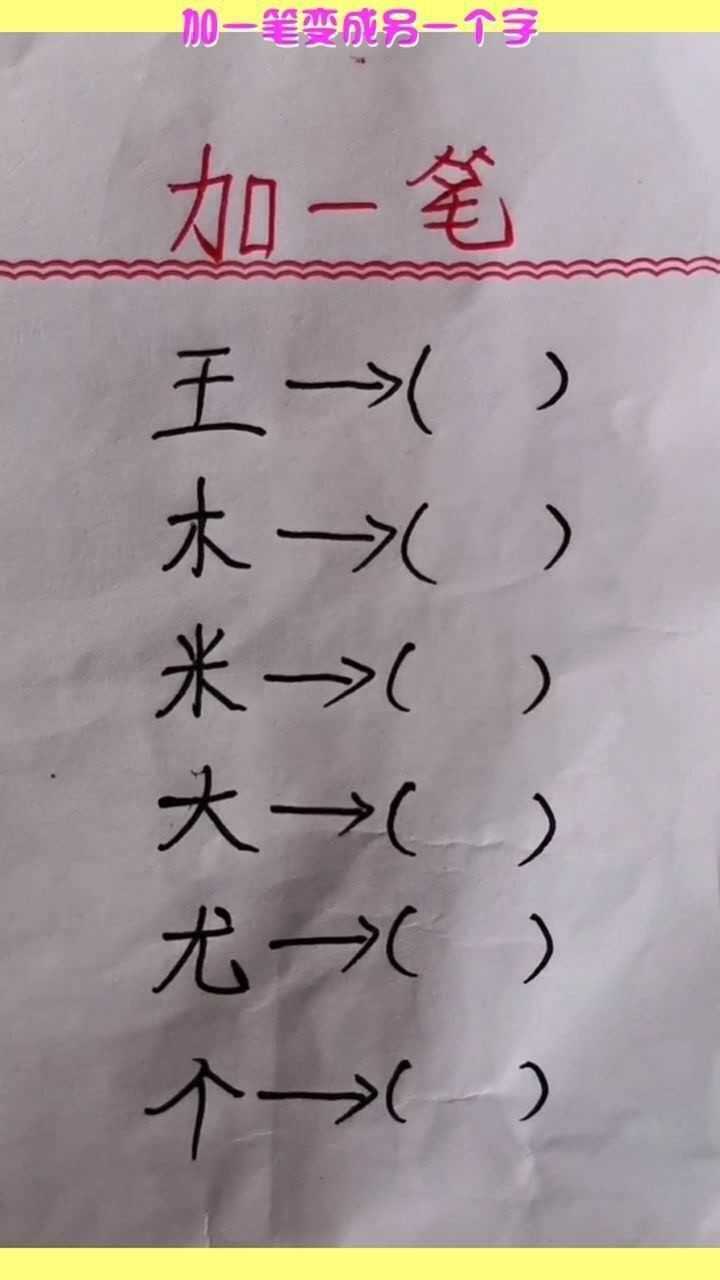 加一笔变成另一个字
加一笔
王→( )
木→( )
米→( )
大→( )
尤→( )
个→( )